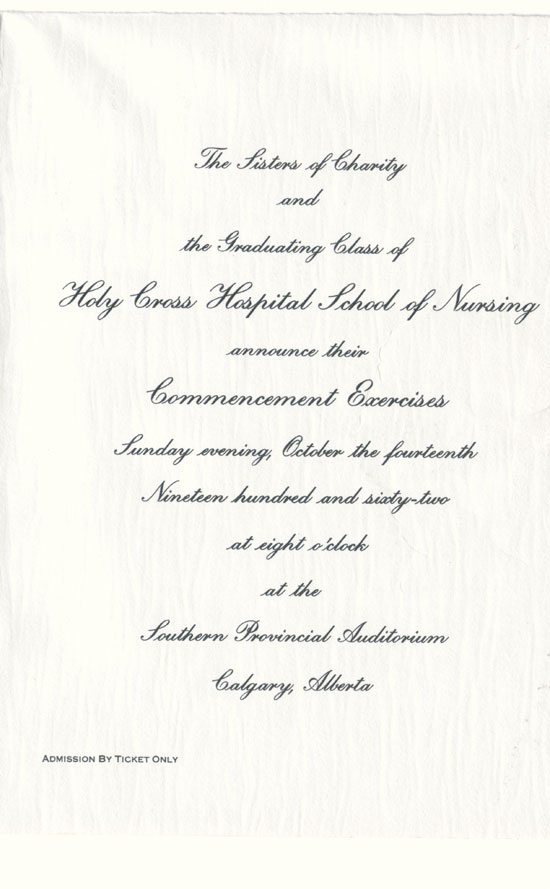 The Sisters of Charity
and
the Graduating Class of
Holy Cross Hospital School of Nursing
announce their
Commencement Exercises
Sunday evening, October the fourteenth
Nineteen hundred and sixty-two
at eight o'clock
at the
Southern Provincial Auditorium
Calgary, Alberta
Admission By Ticket Only